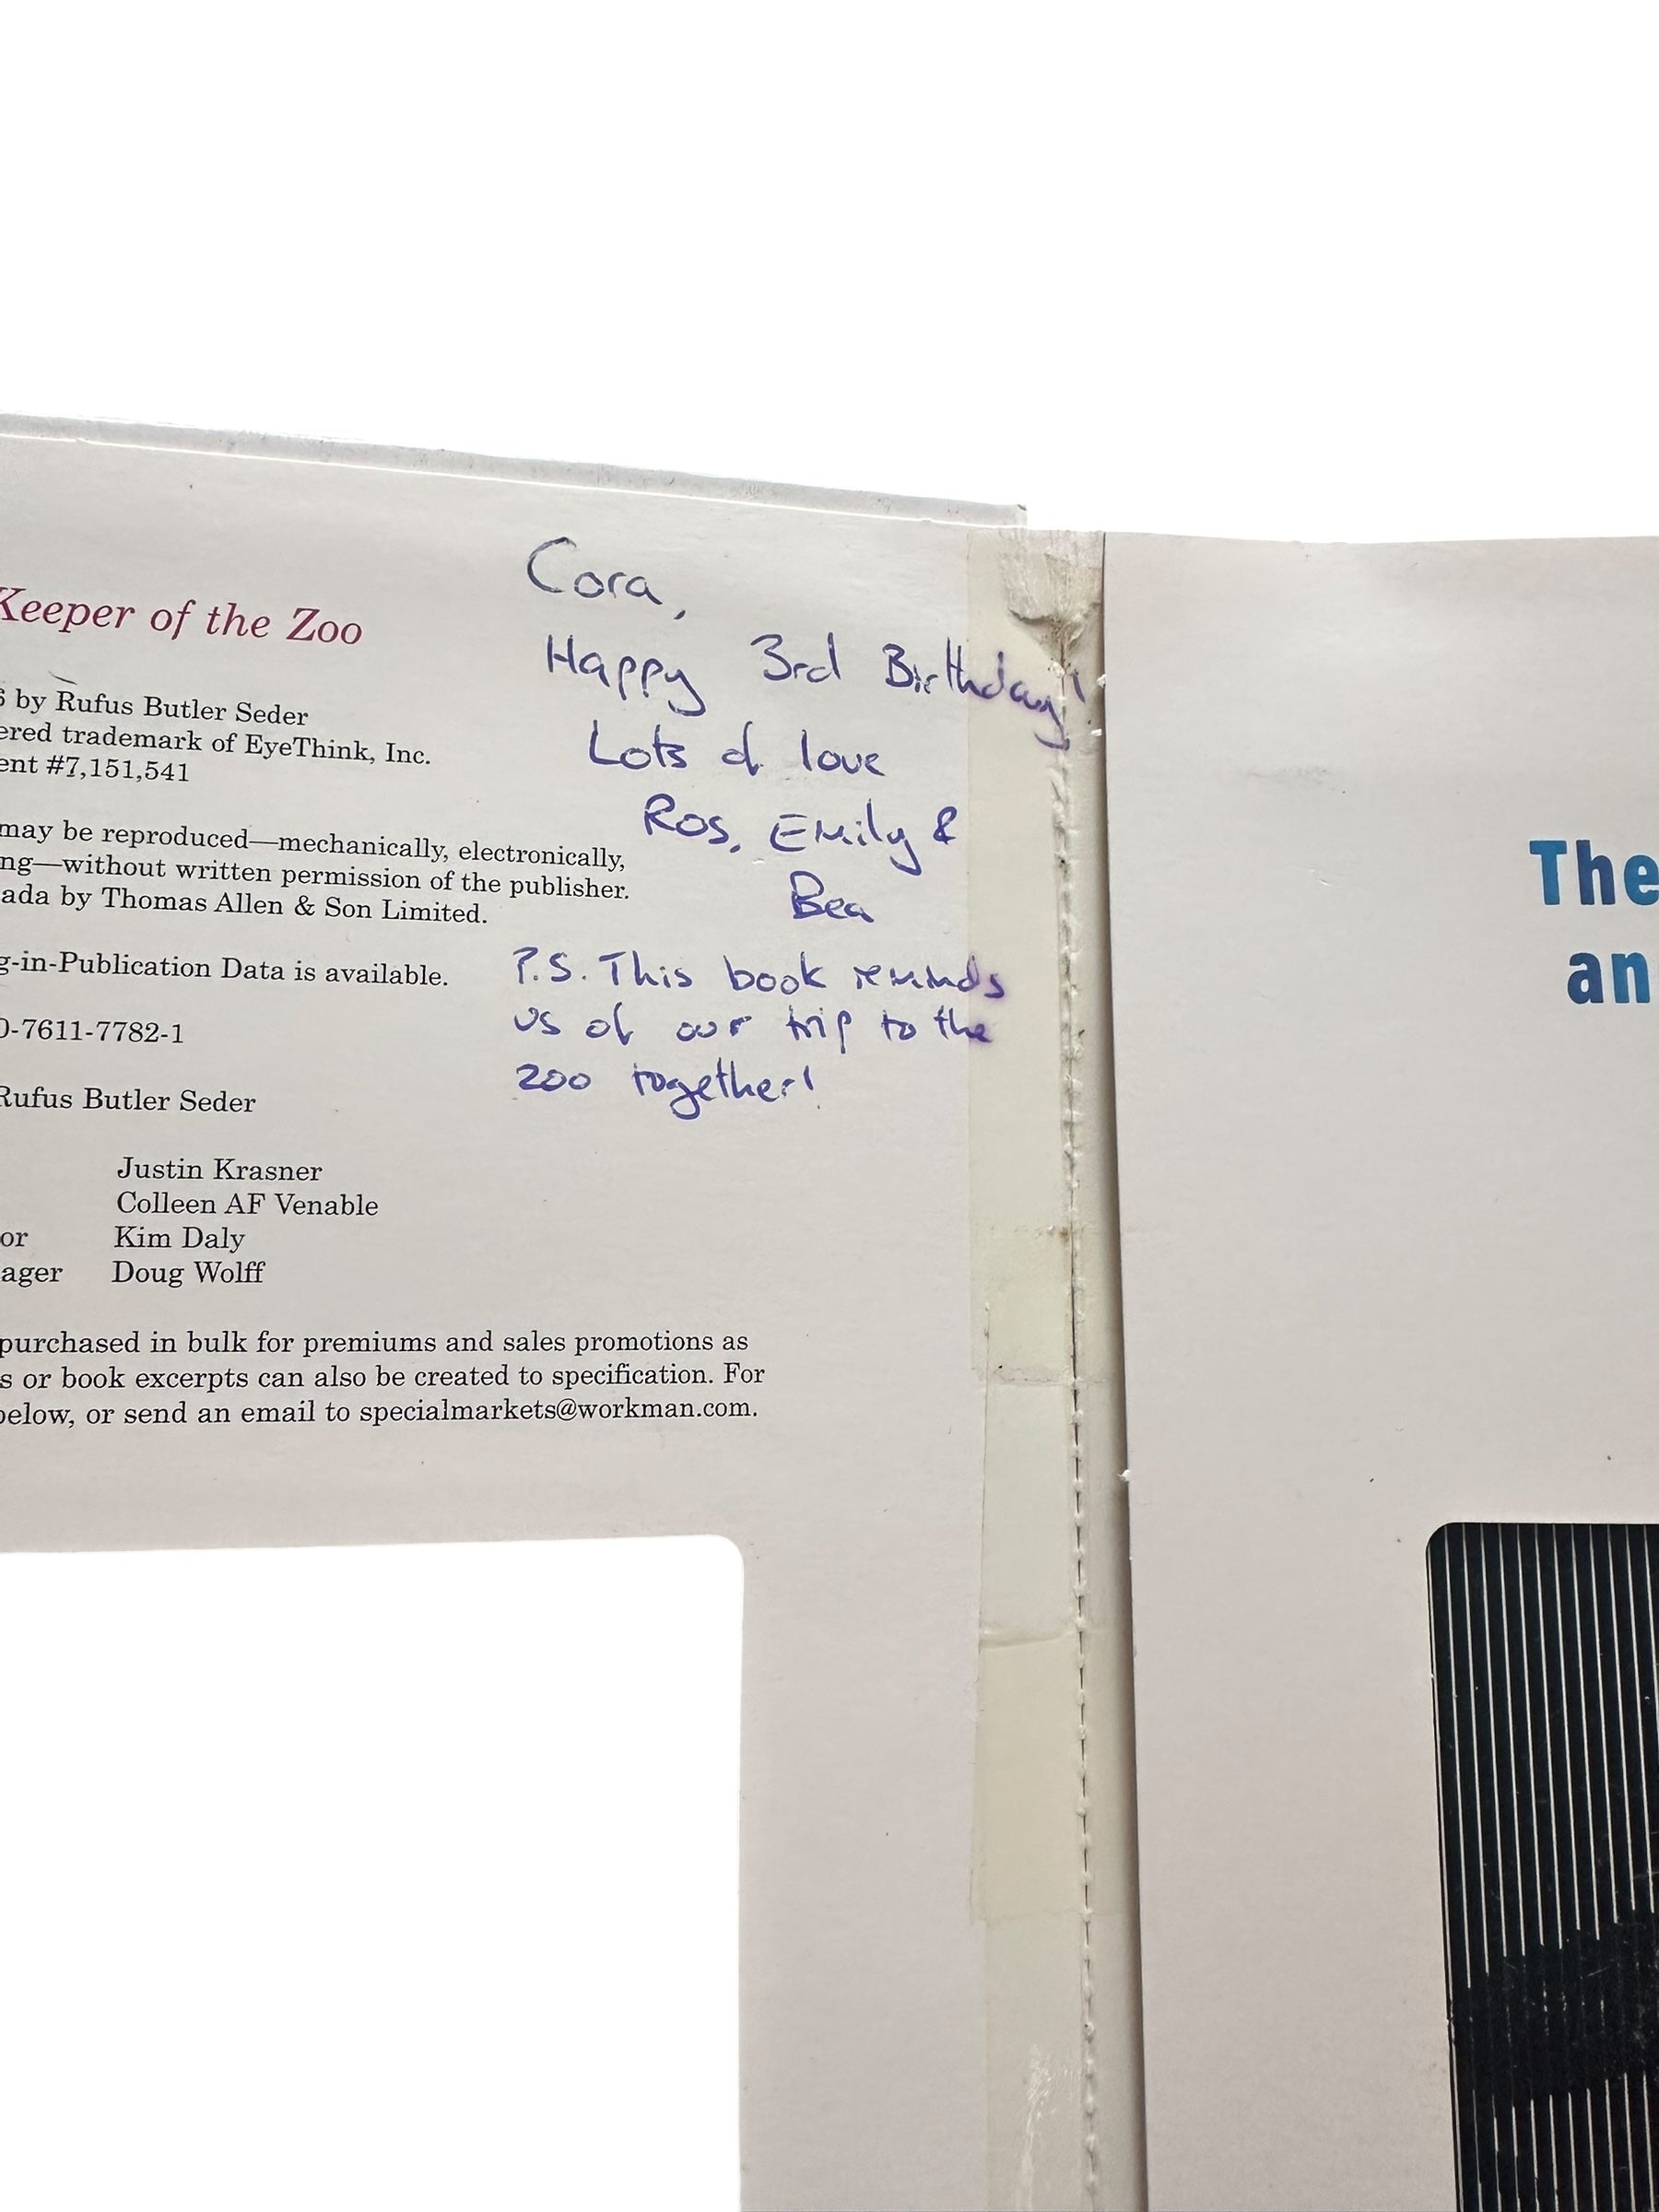 Keeper of the Zoo
by Rufus Butler Seder
ered trademark of EyeThink, Inc.
ent #7,151,541
may be reproduced—mechanically, electronically,
ng—without written permission of the publisher.
ada by Thomas Allen & Son Limited.
g-in-Publication Data is available.
0-7611-7782-1
Rufus Butler Seder
Justin Krasner
Colleen AF Venable
or Kim Daly
ager Doug Wolff
purchased in bulk for premiums and sales promotions as
s or book excerpts can also be created to specification. For
below, or send an email to specialmarkets@workman.com.
Cora,
Happy 3rd Birthday!
Lots of love
Ros, Emily &
Bea
P.S. This book reminds
us of our trip to the
zoo together!
The
an